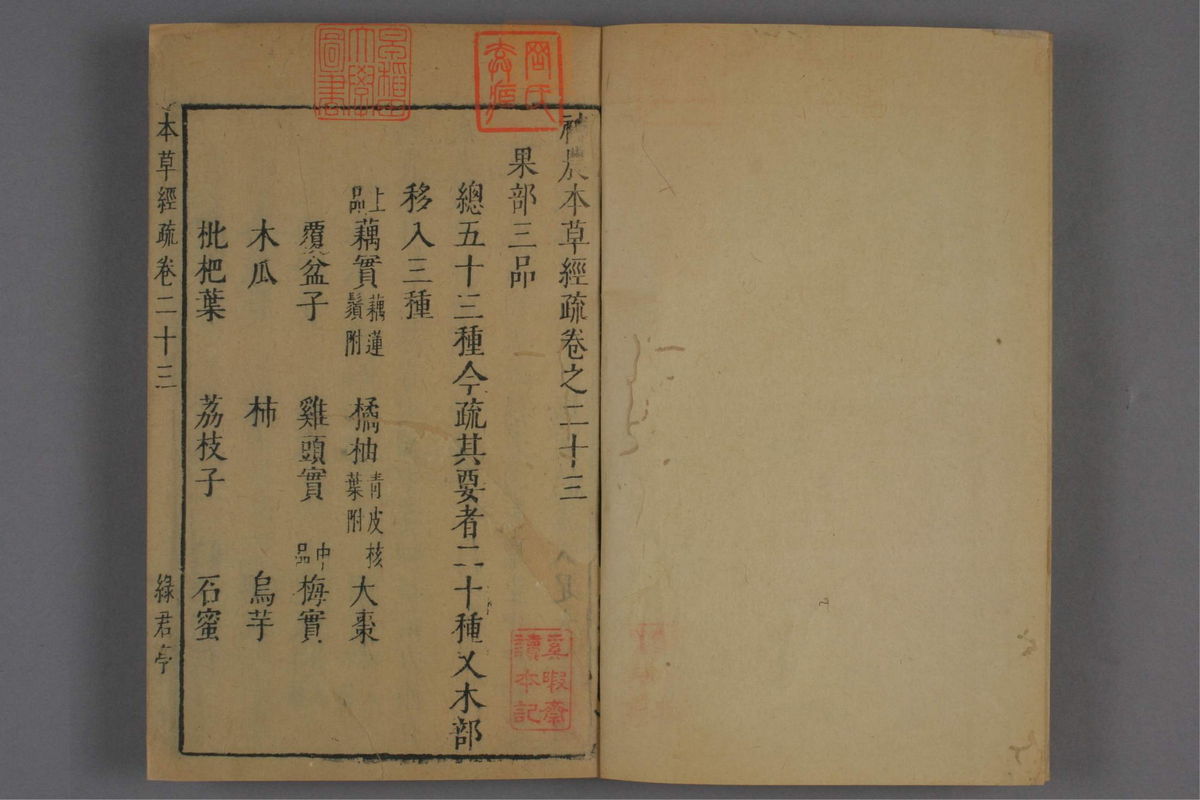 神農本草經疏卷之二十三
果部三品
總五十三種今疏其要者二十種又木部
移入三種
上品 藕實 藕蓮鬚附 橘柚 青皮核葉附 大棗
覆盆子 雞頭實 中品 梅實
木瓜 柿 烏芋
枇杷葉 荔枝子 石蜜
本草經疏 卷二十三 綠君亭
早稻田大學圖書
奚暇齋讀本記